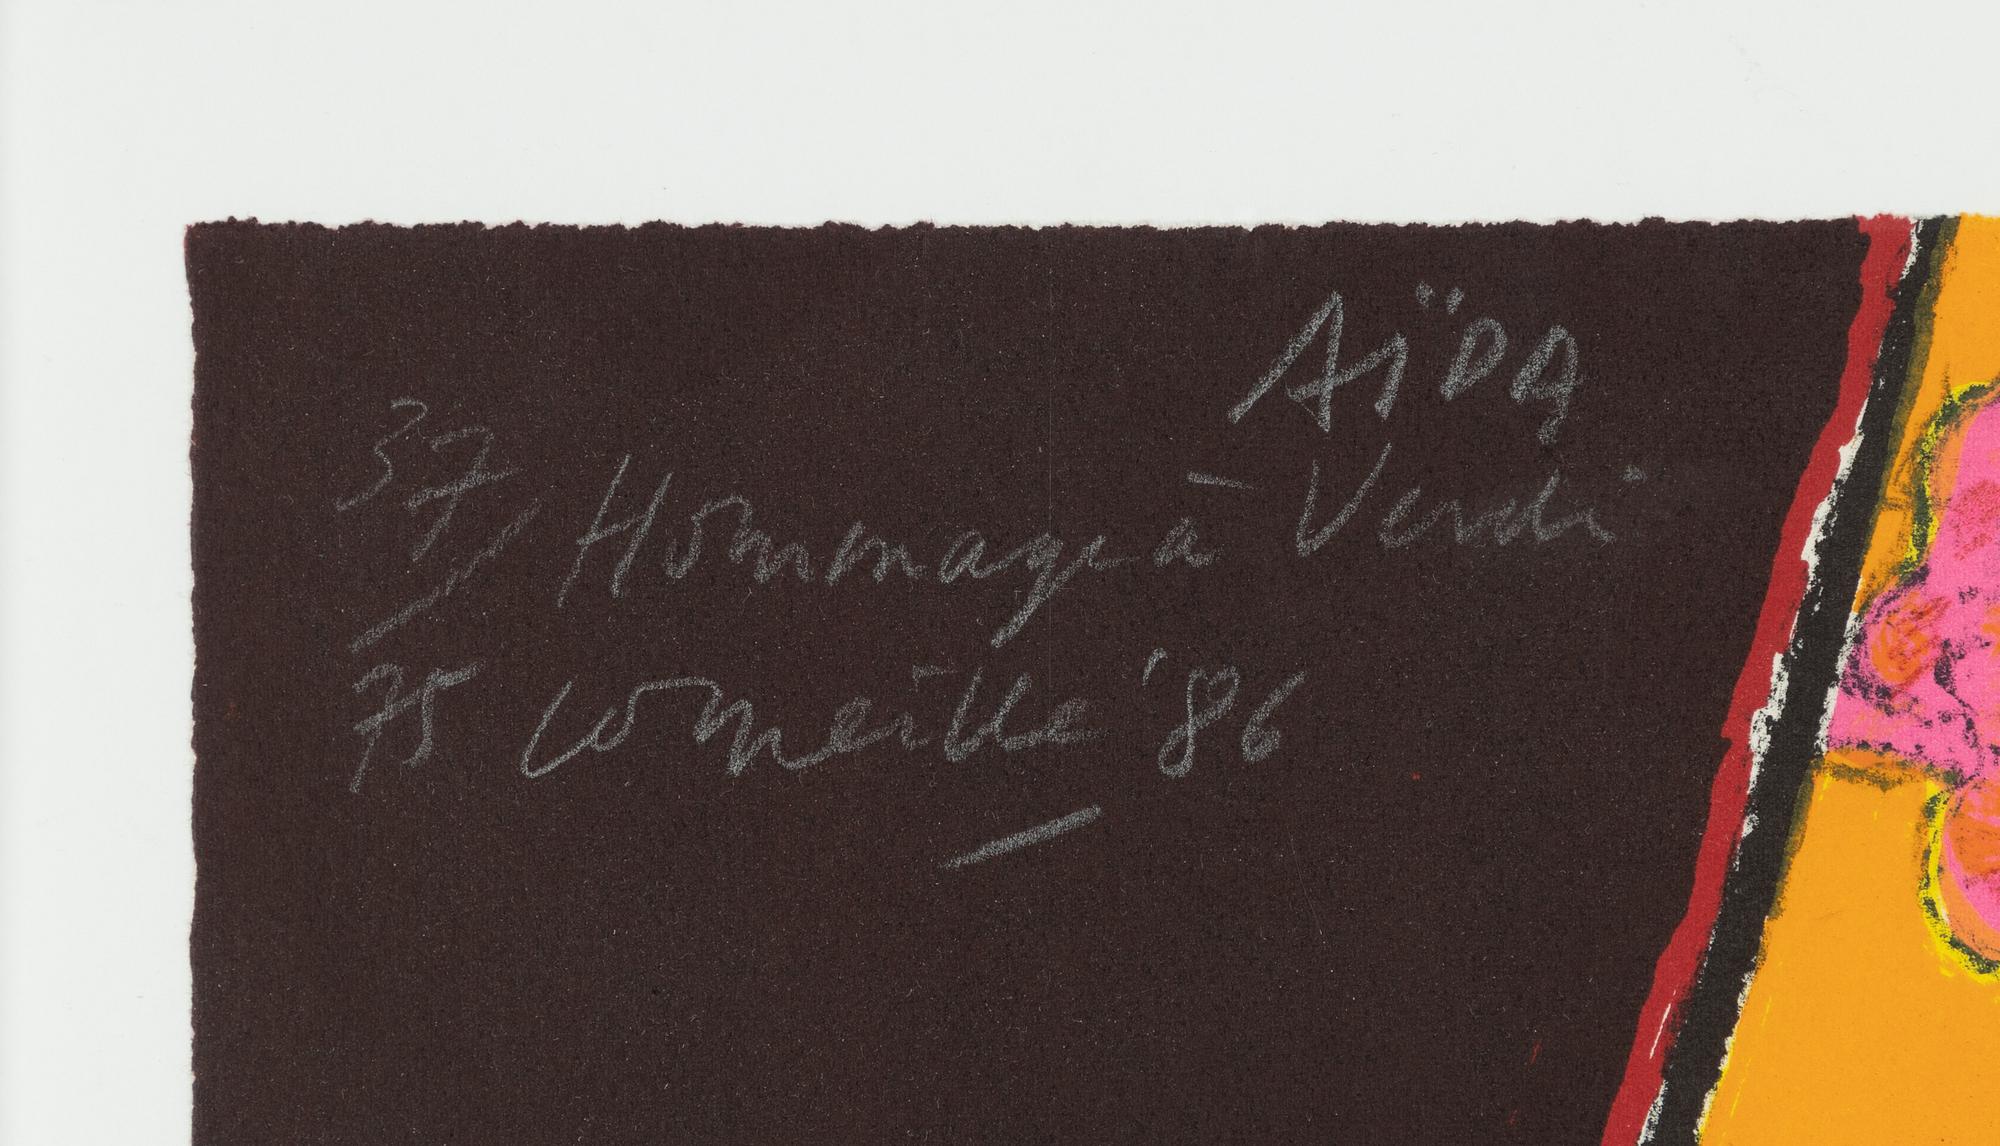 AÏDA
37/ Hommage à Verdi
75 Corneille '86